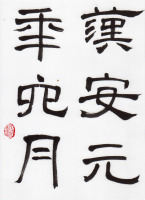 漢安元
年四月